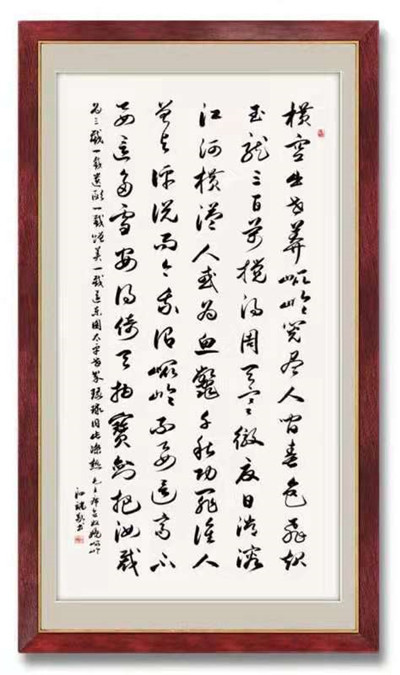 横空出世莽崐崘阅尽人间春色飞起
玉龙三百万搅得周天寒彻夏日消溶
江河横溢人或为鱼鳖千秋功罪谁人
曾与评说而今我谓崐崘不要这高不
要这多雪安得倚天抽寶劍把汝裁
为三截一截遗欧一截赠美一截还东国太平世界环球同此凉热毛主席